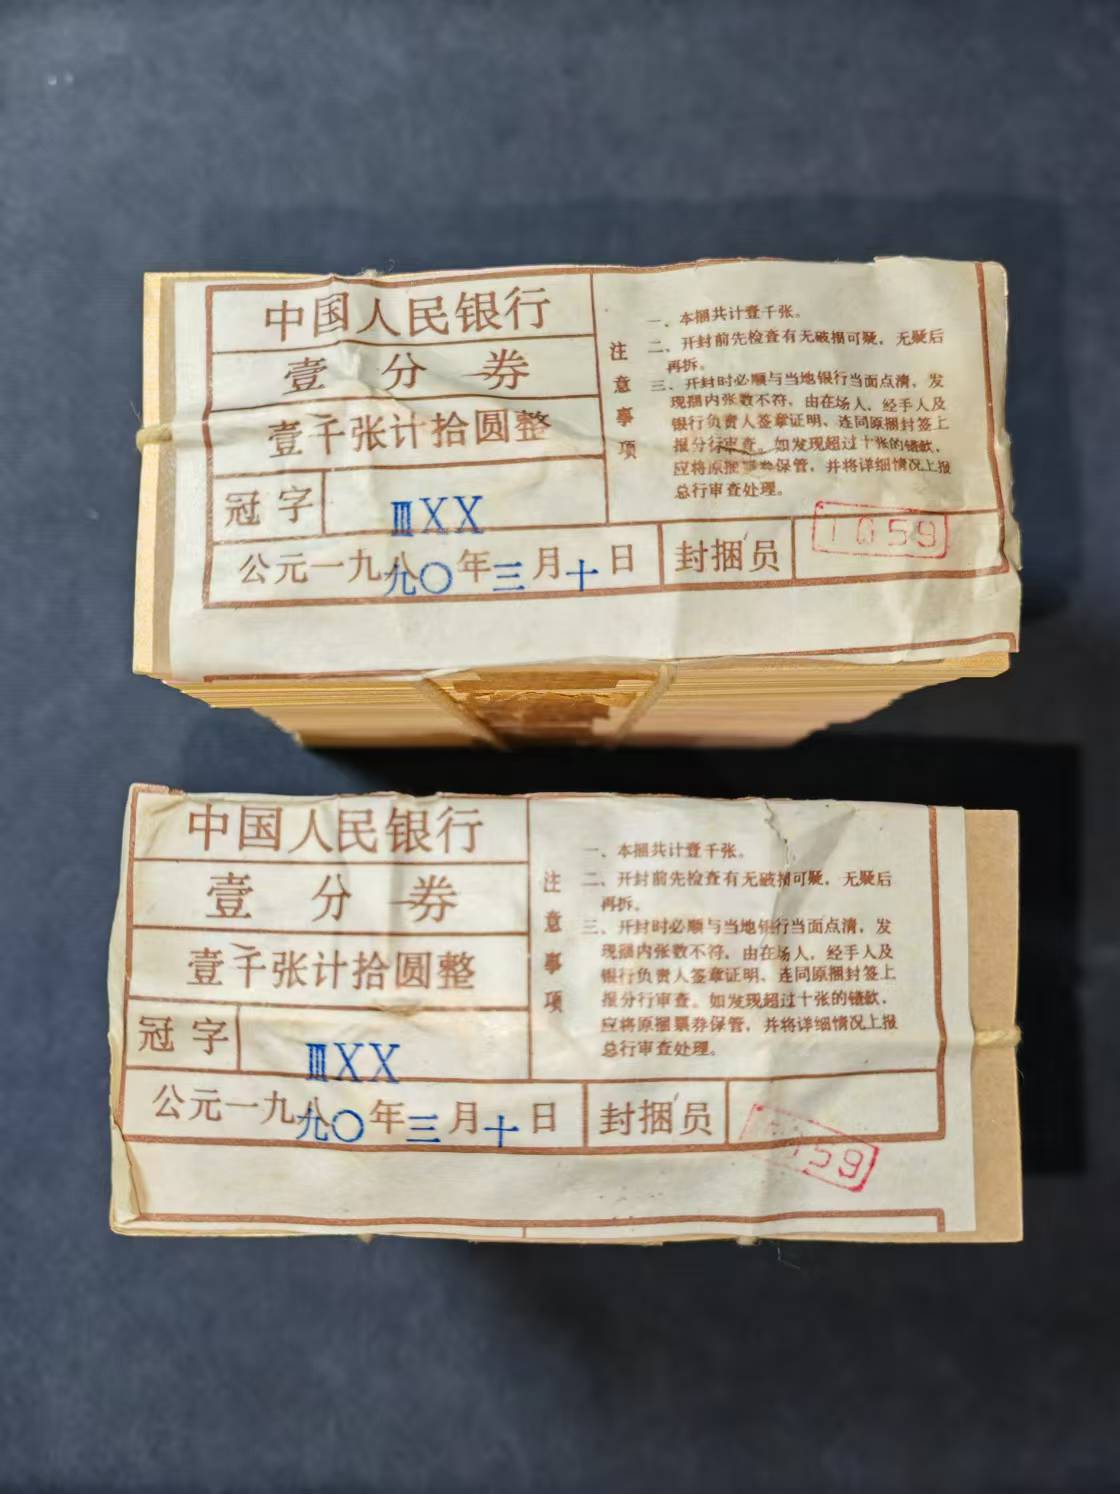 中国人民银行
壹 分 券
壹千张计拾圆整
冠字 ⅢXX
公元一九八九〇年三月十日 封捆员 1059
注意事项
一、本捆共计壹千张。
二、开封前先检查有无破损可疑，无疑后
再拆。
三、开封时必顺与当地银行当面点清，发
现捆内张数不符，由在场人、经手人及
银行负责人签章证明、连同原捆封签上
报分行审查。如发现超过十张的错款，
应将原捆票券保管，并将详细情况上报
总行审查处理。
中国人民银行
壹 分 券
壹千张计拾圆整
冠字 ⅢXX
公元一九八九〇年三月十日 封捆员 059
注意事项
一、本捆共计壹千张。
二、开封前先检查有无破损可疑，无疑后
再拆。
三、开封时必顺与当地银行当面点清，发
现捆内张数不符，由在场人、经手人及
银行负责人签章证明、连同原捆封签上
报分行审查。如发现超过十张的错款，
应将原捆票券保管，并将详细情况上报
总行审查处理。